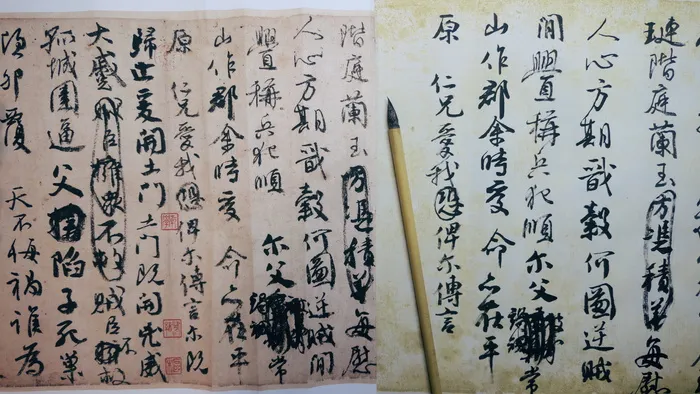 階庭蘭玉方憑積善每慰
人心方期戩穀何圖逆賊閒
釁稱兵犯順尒父常
山作郡余時受命亦在平
原仁兄愛我恐俾尒傳言尒既
歸止爰開土門土門既開凶威
大蹙賊臣擁眾不救賊臣不救
孤城圍逼父陷子死巢
傾卵覆天不悔禍誰為
璉階庭蘭玉方憑積善每慰
人心方期戩穀何圖逆賊
閒釁稱兵犯順尒父常
山作郡余時受命亦在平
原仁兄愛我恐俾尒傳言